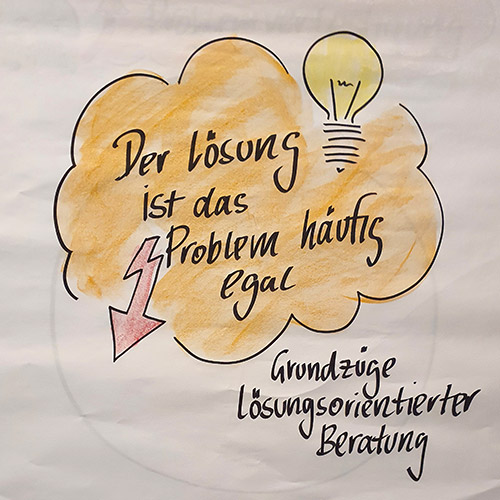 Der lösung
ist das
Problem häufig
egal
Grundzüge
lösungsorientierter
Beratung